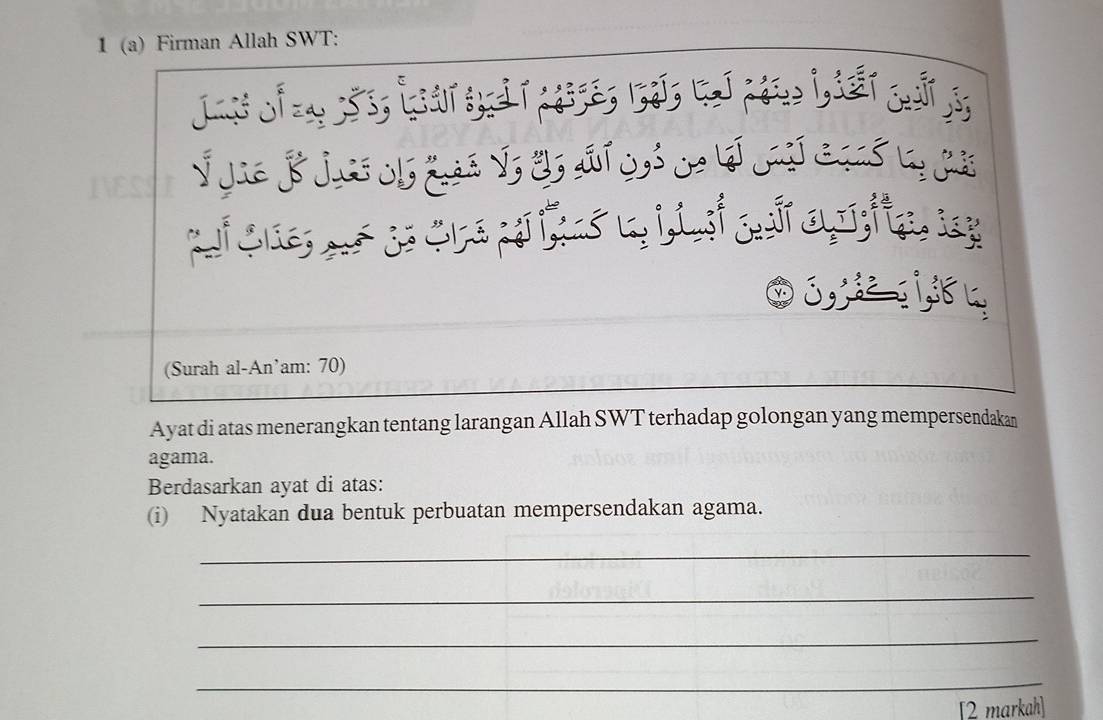 1 (a) Firman Allah SWT:
وَذَرِ ٱلَّذِينَ ٱتَّخَذُوا۟ دِينَهُمْ لَعِبًا وَلَهْوًا وَغَرَّتْهُمُ ٱلْحَيَوٰةُ ٱلدُّنْيَا ۚ وَذَكِّرْ بِهِۦٓ أَن تُبْسَلَ
نَفْسٌۢ بِمَا كَسَبَتْ لَيْسَ لَهَا مِن دُونِ ٱللَّهِ وَلِىٌّ وَلَا شَفِيعٌ وَإِن تَعْدِلْ كُلَّ عَدْلٍ لَّا
يُؤْخَذْ مِنْهَآ ۗ أُو۟لَٰٓئِكَ ٱلَّذِينَ أُبْسِلُوا۟ بِمَا كَسَبُوا۟ ۖ لَهُمْ شَرَابٌ مِّنْ حَمِيمٍ وَعَذَابٌ أَلِيمٌۢ
بِمَا كَانُوا۟ يَكْفُرُونَ ٧٠
(Surah al-An'am: 70)
Ayat di atas menerangkan tentang larangan Allah SWT terhadap golongan yang mempersendakan
agama.
Berdasarkan ayat di atas:
(i) Nyatakan dua bentuk perbuatan mempersendakan agama.
[2 markah]